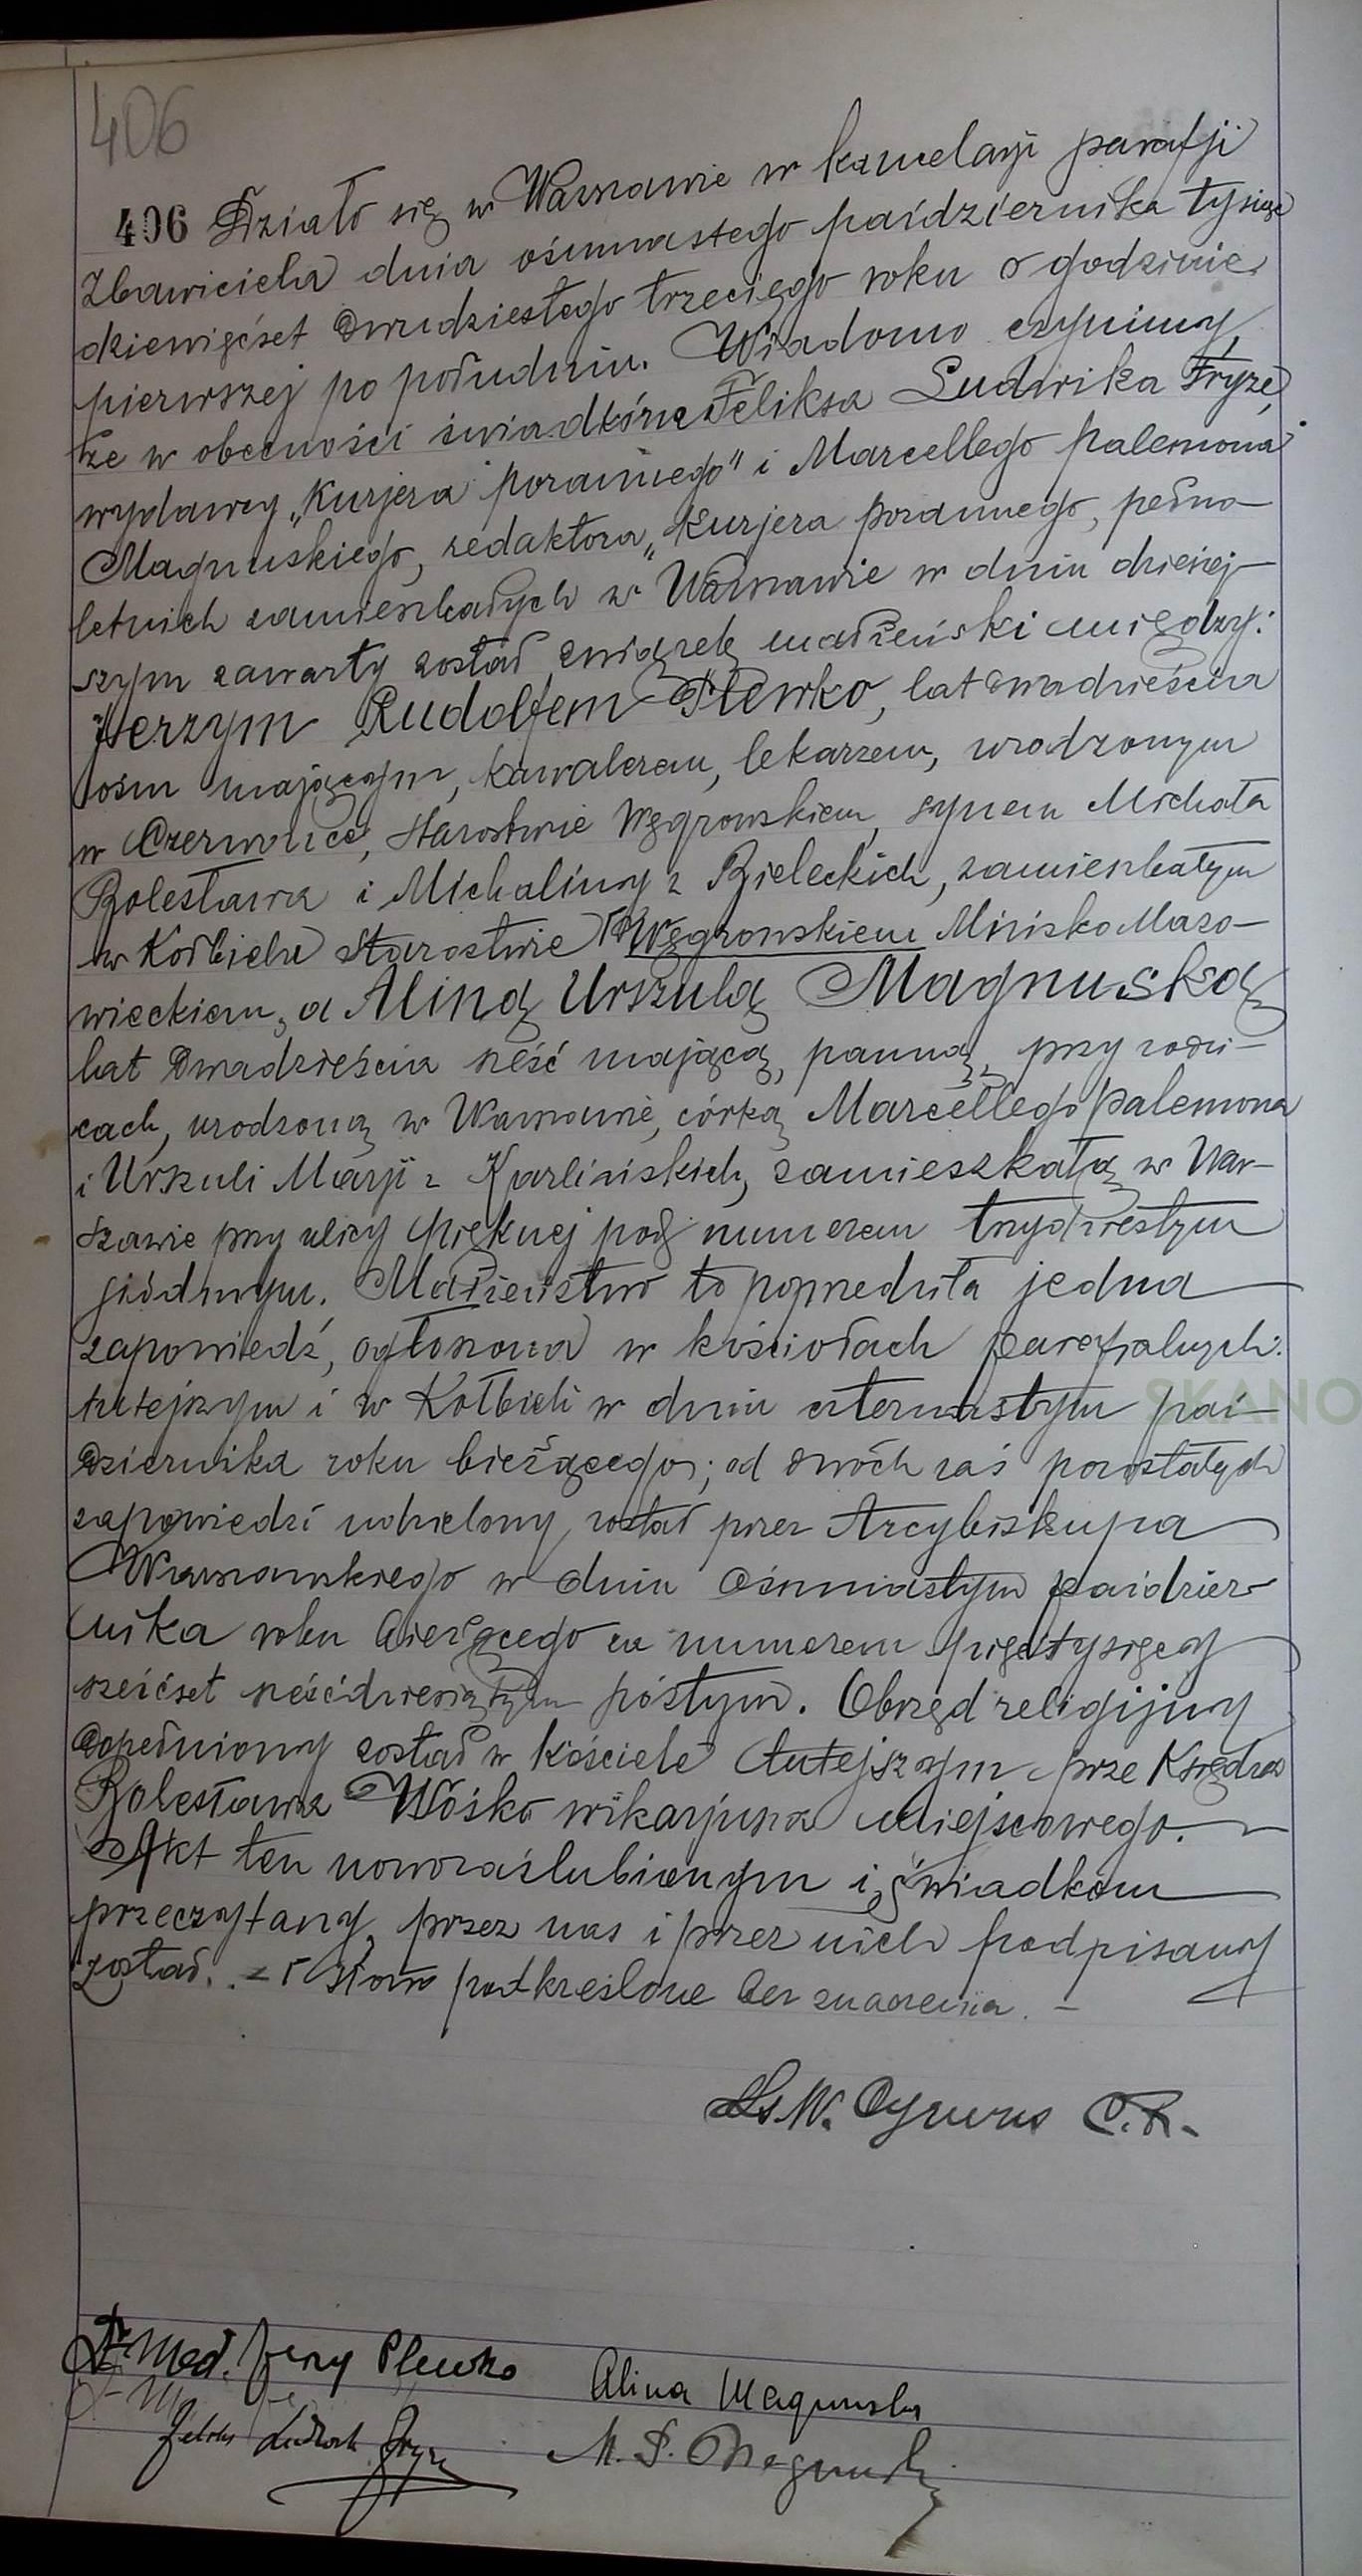 406
406 Działo się w Warszawie w kancelarji parafji
Zbawiciela dnia ośmnastego października tysiąc
dziewięćset dwudziestego trzeciego roku o godzinie
pierwszej po południu. Wiadomo czynimy,
że w obecności świadków: Feliksa Ludwika Fryze,
wydawcy „Kurjera porannego" i Marcellego Palemona
Magnuskiego, redaktora „Kurjera porannego, pełno-
letnich zamieszkałych w Warszawie w dniu dzisiej-
szym zawarty został związek małżeński między:
Jerzym Rudolfem Plewko, lat dwadzieścia
ośm mającym, kawalerem, lekarzem, urodzonym
w Czerwonce, Starostwie Węgrowskiem, synem Michała
Bolesława i Michaliny z Bieleckich, zamieszkałym
w Kołbieli Starostwie Węgrowskiem Mińsko Mazo-
wieckiem, a Aliną Urszulą Magnuską
lat dwadzieścia sześć mającą, panną, przy rodzi-
cach, urodzoną w Warszawie, córką Marcellego Palemona
i Urszuli Marji z Karlińskich, zamieszkałą w War-
szawie przy ulicy Pięknej pod numerem trzydziestym
siódmym. Małżeństwo to poprzedziła jedna
zapowiedź, ogłoszona w kościołach parafjalnych:
tutejszym i w Kołbieli w dniu czternastym paź-
dziernika roku bieżącego; od dwóch zaś pozostałych
zapowiedzi udzielony został przez Arcybiskupa
Warszawskiego w dniu ośmnastym paździer-
nika roku bieżącego za numerem pięć tysięcy
sześćset sześćdziesiątym szóstym. Obrzęd religijny
dopełniony został w kościele tutejszym prze Księdza
Bolesława Wośko wikarjusza miejscowego.
Akt ten nowozaślubionym i świadkom
przeczytany, przez nas i przez nich podpisany
został. - Słowo podkreślone bez znaczenia. -
Ks. W. C.R.
Dr Med. Jerzy Plewko Alina Magnuska
Feliks Ludwik Fryze M. P. Magnuski